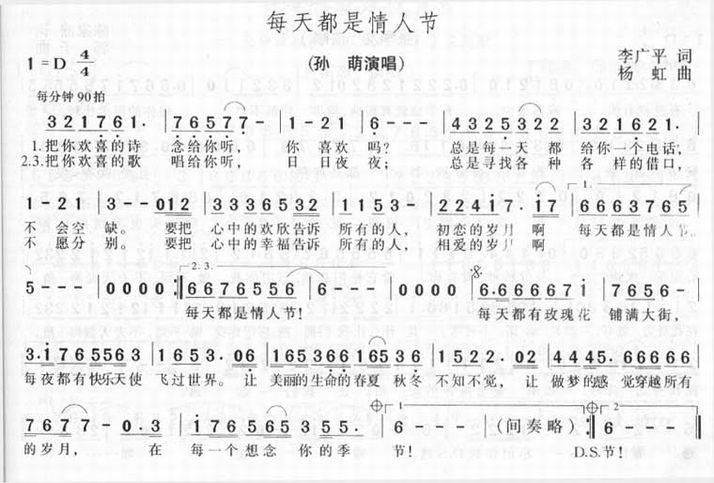 每天都是情人节
1=D 4/4
(孙 萌演唱)
李广平 词
杨 虹 曲
每分钟 90 拍
3 2 1 7 6 1. | 7 6 5 7 7 - | 1 - 2 1 | 6 - - - | 4 3 2 5 3 2 2 | 3 2 1 6 2 1. |
1.把你欢喜的诗 念给你听, 你 喜欢 吗? 总是每一天 都 给你一个电话,
2.3.把你欢喜的歌 唱给你听, 日 日夜 夜; 总是寻找各 种 各 样的借口,
1 - 2 1 | 3 - - 0 1 2 | 3 3 3 6 5 3 2 | 1 1 5 3 - | 2 2 4 1 7. 1 7 | 6 6 6 3 7 6 5 |
不 会空 缺。 要把 心中的欢欣告诉 所有的人, 初恋的岁月 啊 每天都是情人节。
不 愿分 别。 要把 心中的幸福告诉 所有的人, 相爱的岁月 啊
5 - - - | 0 0 0 0 :‖ 6 6 7 6 5 5 6 | 6 - - - | 0 0 0 0 | 6. 6 6 6 6 7 1 | 7 6 5 6 - |
每天都是情人节! 每天都有玫瑰花 铺满大街,
3. 1 7 6 5 5 6 3 | 1 6 5 3. 0 6 | 1 6 5 3 6 6 1 6 5 3 6 | 1 5 2 2. 0 2 | 4 4 4 5. 6 6 6 6 6 |
每夜都有快乐天使 飞过世界。 让 美丽的生命的春夏 秋冬 不知不觉, 让 做梦的感 觉穿越所有
7 6 7 - 0 3 | 2. 3 7 6 5 6 5 | 3 5 5. | 6 - - - | - - (间奏略) :‖ 6 - - - ‖
的岁月, 在 每一个想念 你的季 节! D.S.节!